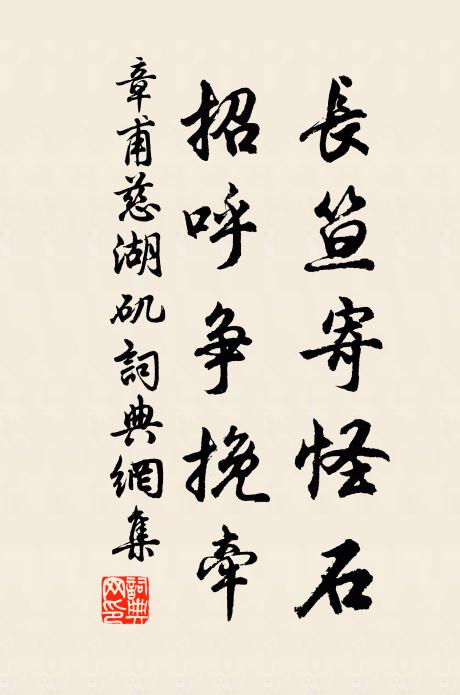 長笪寄怪石
招呼争挽牽
章甫慈湖矶詞典網集
詞典
网印